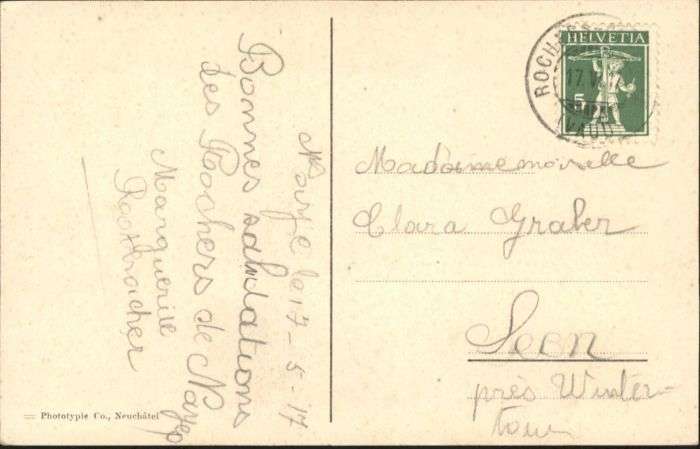 Naye le 17-5-17
Bonnes salutations
des Rochers de Naye
Marguerite
Phototypie Co., Neuchâtel
HELVETIA
5
ROCHERS
17 V
(VAUD)
Mademoiselle
Clara Graber
Seon
près Winter-
tour